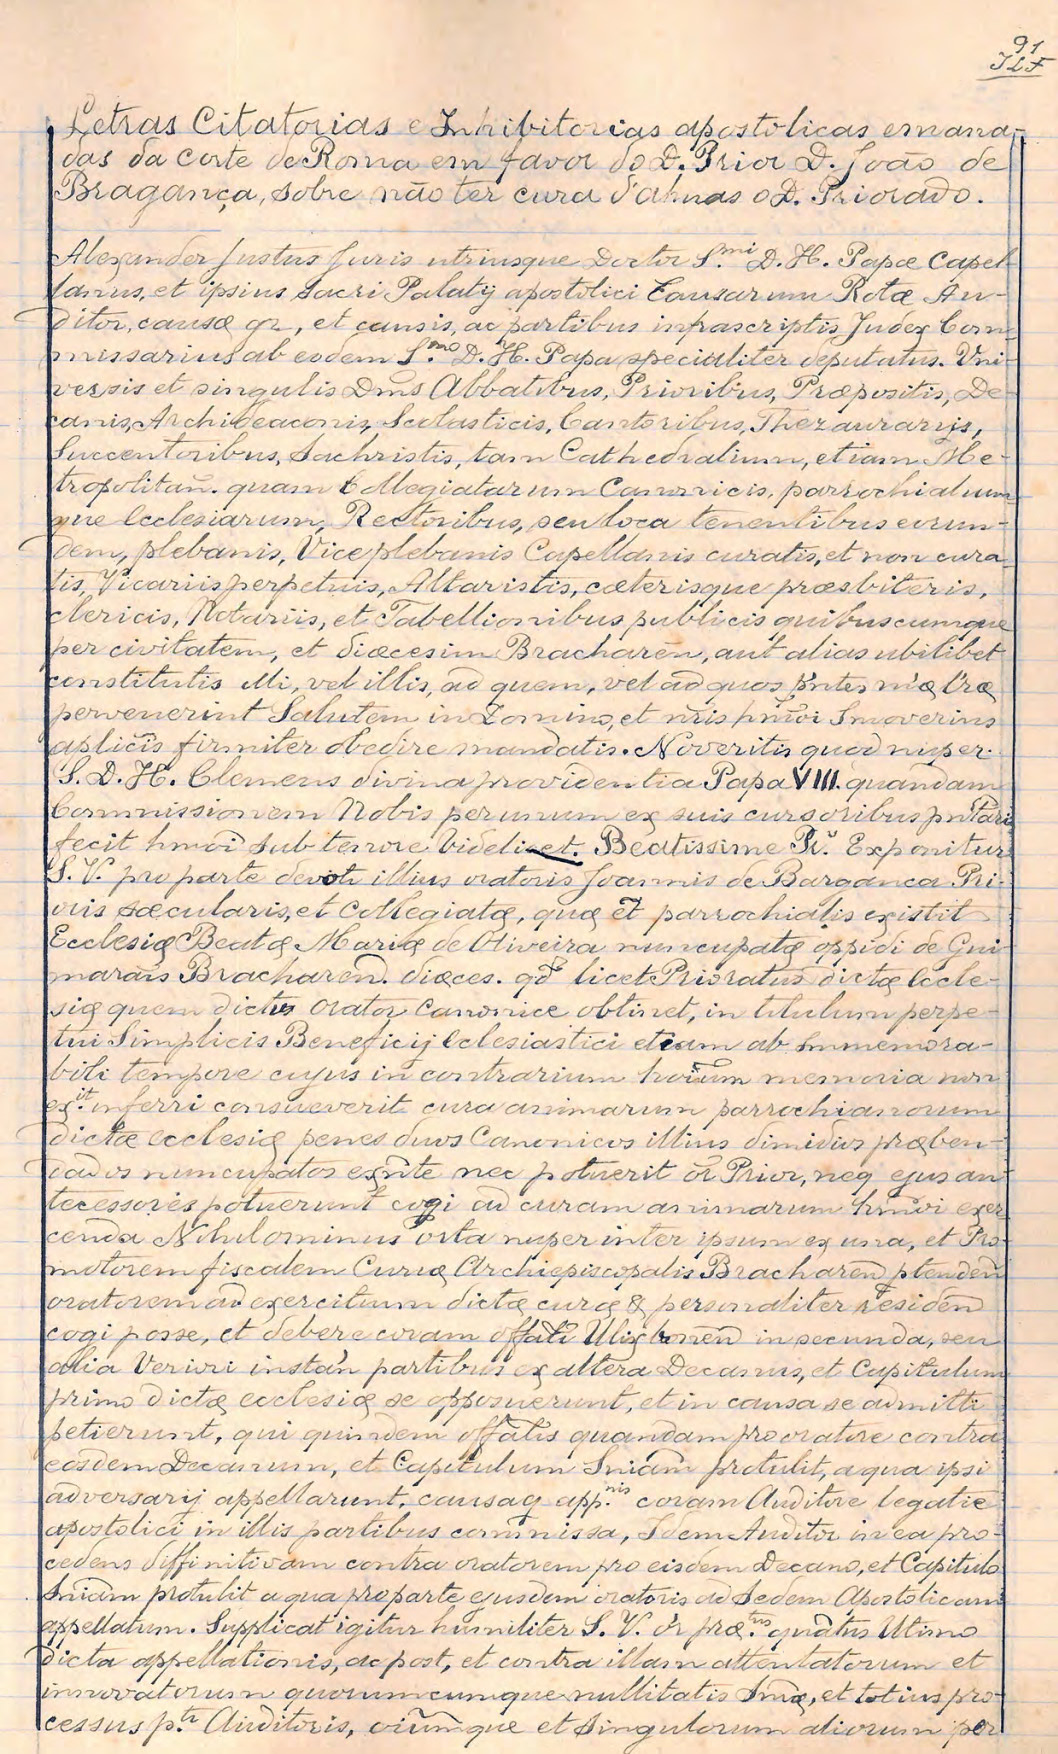 91
JLF
Letras Citatorias e Inhibitorias apostolicas emana-
das da corte de Roma em favor do D. Prior D. João de
Bragança, sobre não ter cura d'almas o D. Priorado.
Alexander Justus Juris utriusque Doctor S.mi D. H. Papæ Capel
lanus, et ipsius Sacri Palatij apostolici Causarum Rotæ Au-
ditor, causæ gr, et causis, ac partibus infrascriptis Judex Com
missarius ab eodem S.mo D. H. Papa specialiter deputatus. Uni-
versis et singulis Dms Abbatibus, Prioribus, Præpositis, De
canis, Archideaconis, Scolasticis, Cantoribus, Thezaurarijs,
Succentoribus, Sachristis, tam Cathedralium, etiam Me-
tropolitañ. quam Collegiatarum Canonicis, parrochialium
que Ecclesiarum, Rectoribus, seu loca tenentibus eorun-
dem, plebanis, Vice plebanis Capellanis curatis, et non cura
tis, Vicariis perpetuis, Altaristis, cæterisque præsbiteris,
clericis, Notariis, et Tabellionibus publicis quibuscumque
per civitatem, et diœcesim Brachareñ, aut alias ubilibet
constitutis illi, vel illis, ad quem, vel ad quos
pervenerint Salutem in Domino, et
firmiter obedire mandatis. Noveritis quod nuper
S. D. H. Clemens divina providentia Papa VIII. quandam
Commissionem Nobis per unum ex suis cursoribus pñtari
fecit hmõi sub tenore videlicet. Beatissime Pr. Exponitur
S. V. pro parte devoti illius oratoris Joannis de Barganca Pri-
oris sæcularis, et Collegiatæ, quæ et parrochialis existit
Ecclesiæ Beatæ Mariæ de Oliveira nuncupatæ oppidi de Gui
marais Bracharend. diœces. qd licet Prioratus dictæ Eccle-
siæ quem dictus Orator Canonice obtinet, in titulum perpe-
tui Simplicis Beneficij Eclesiastici etiam ab immemora-
bili tempore cujus in contrarium hoium memoria non
ex.it inferri consueverit cura animarum parrochianorum
dictæ ecclesiæ penes duos Canonicos illius dimidios præben-
dados nuncupatos exñte nec potuerit õr Prior, neq ejus an
tecessores potuerunt cogi ad curam animarum hmõi exer
cenda Nihilominus orta nuper inter ipsum ex una, et Pro
motorem fiscalem Curiæ Archiepiscopalis Bracharend ptendeñ
oratorem ad exercitium dictæ curæ & personaliter residend
cogi posse, et debere coram offati Ulixbonend in secunda, seu
alia Veriori instañ partibus ex altera Decanus, et Capitulum
primo dictæ ecclesiæ se opposuerunt, et in causa se admitti
petierunt, qui quindem offatis quandam pro oratore contra
eosdem Decanum, et Capitulum Sniam protulit, a qua ipsi
adversarij appellarunt, causaq app.nis coram Auditore legatie
apostolici in illis partibus commissa, Idem Auditor in ea pro-
cedens diffinitivam contra oratorem pro eisdem Decano, et Capitulo
Sniam protulit a qua pro parte ejusdem oratoris ad Sedem Apostolicam
appellatum. Supplicat igitur humiliter S. V. õr præ.tus quãtus Utimo
dicta appellationis, ac post, et contra illam attentatorum et
innovatorum quorumcumque nullitatis Smæ, et totius pro-
cessus p.ti Auditoris, oiumque et Singulorum aliorum per